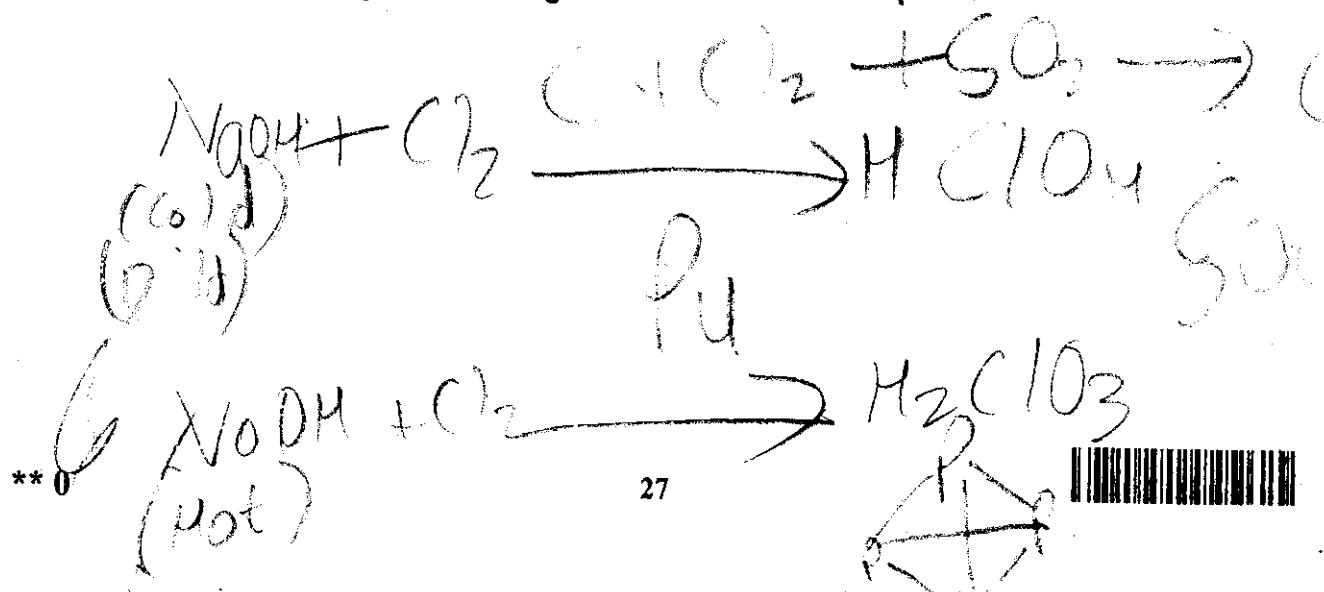 Cl2 + SO2 →
NaOH + Cl2 → HClO4
(Cold)
(Dild)
P4
NaOH + Cl2 → H2ClO3
(Hot)
** 0 27
P
P P